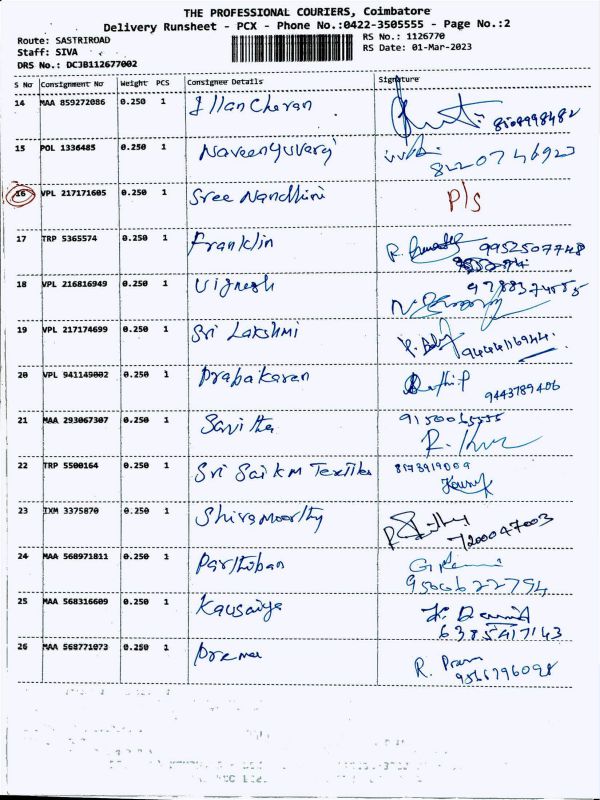 THE PROFESSIONAL COURIERS, Coimbatore
Delivery Runsheet - PCX - Phone No.:0422-3505555 - Page No.:2
Route: SASTRIROAD
RS No.: 1126770
Staff: SIVA
RS Date: 01-Mar-2023
DRS No.: DCJB112677002
S No Consignment No Weight PCS Consignee Details Signature
14 MAA 859272086 0.250 1 Illancheran
15 POL 1336485 0.250 1 Naveenyuvaraj
16 VPL 217171605 0.250 1 Sree Nandhini P/S
17 TRP 5365574 0.250 1 Franklin 9952507748
18 VPL 216816949 0.250 1 Vignesh
19 VPL 217174699 0.250 1 Sri Lakshmi 9444116944
20 VPL 941149002 0.250 1 Prabakaran 9443789406
21 MAA 293067307 0.250 1 Savitha
22 TRP 5500164 0.250 1 Sri Sai KM Textiles 8173919009
23 IXM 3375870 0.250 1 Shivamoorthy 7200047003
24 MAA 568971811 0.250 1 Parthiban
25 MAA 568316609 0.250 1 Kausalya 6385417143
26 MAA 568771073 0.250 1 Prema R. Prem